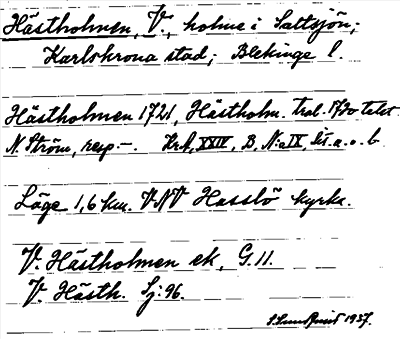 Hästholmen, V., holme i Saltsjön;
Karlskrona stad; Blekinge l.
Hästholmen 1721, Hästholm. tral. 1730 talet
N. Ström, resp -. KrA, XXIV, B, N:o IX, lit. a. o. b.
Läge 1,6 km. VNV Hasslö kyrka.
V. Hästholmen ek, G. 11.
V. Hästh. Sj: 96.
1937.